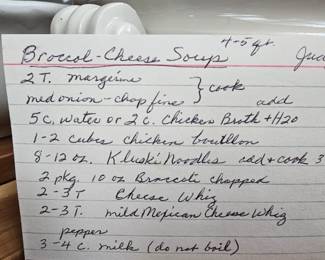 4-5 qt.
Broccol-Cheese Soup
2 T. margerine } cook
med onion-chop fine add
5 c, water or 2 c. Chicken Broth + H2O
1-2 cubes chicken bouillon
8-12 oz. Kluski Noodles add & cook 3
2 pkg. 10 oz Broccoli chopped
2-3 T Cheese Whiz
2-3 T. mild Mexican Cheese Whiz
pepper
3-4 c. milk (do not boil)